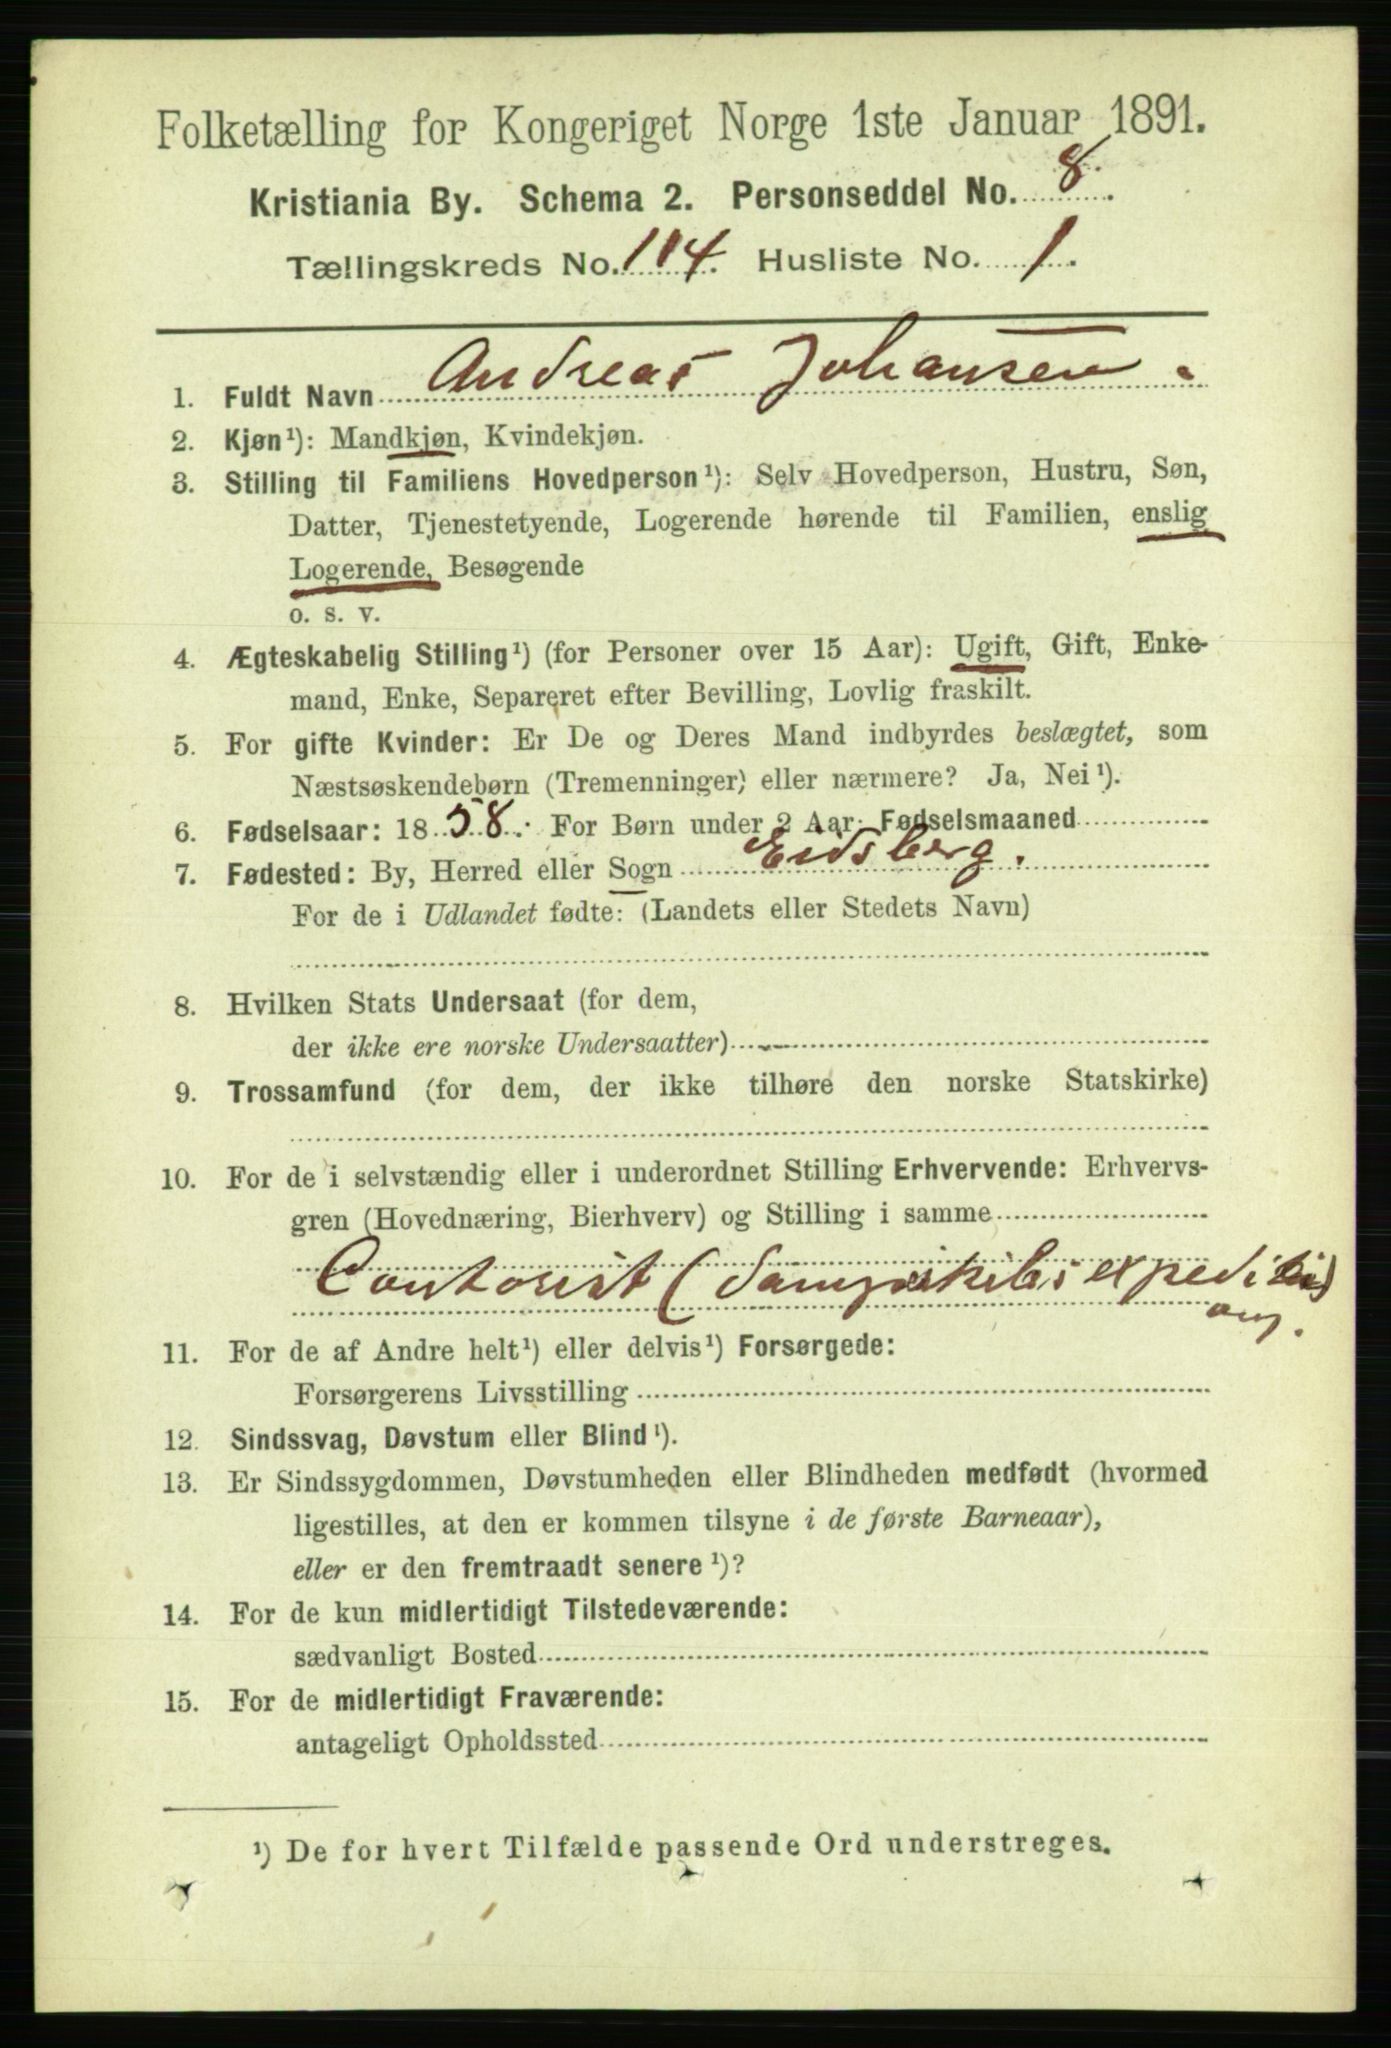 Folketælling for Kongeriget Norge 1ste Januar 1891.
Kristiania By. Schema 2. Personseddel No. 8.
Tællingskreds No. 114. Husliste No. 1.
1. Fuldt Navn Andreas Johansen.
2. Kjøn¹): Mandkjøn, Kvindekjøn.
3. Stilling til Familiens Hovedperson¹): Selv Hovedperson, Hustru, Søn,
Datter, Tjenestetyende, Logerende hørende til Familien, enslig
Logerende, Besøgende
o. s. v.
4. Ægteskabelig Stilling¹) (for Personer over 15 Aar): Ugift, Gift, Enke-
mand, Enke, Separeret efter Bevilling, Lovlig fraskilt.
5. For gifte Kvinder: Er De og Deres Mand indbyrdes beslægtet, som
Næstsøskendebørn (Tremenninger) eller nærmere? Ja, Nei¹).
6. Fødselsaar: 1858. For Børn under 2 Aar: Fødselsmaaned
7. Fødested: By, Herred eller Sogn Eidsberg.
For de i Udlandet fødte: (Landets eller Stedets Navn)
8. Hvilken Stats Undersaat (for dem,
der ikke ere norske Undersaatter)
9. Trossamfund (for dem, der ikke tilhøre den norske Statskirke)
10. For de i selvstændig eller i underordnet Stilling Erhvervende: Erhvervs-
gren (Hovednæring, Bierhverv) og Stilling i samme
Contorist (Dampskibsexpedition)
11. For de af Andre helt¹) eller delvis¹) Forsørgede:
Forsørgerens Livsstilling
12. Sindssvag, Døvstum eller Blind¹).
13. Er Sindssygdommen, Døvstumheden eller Blindheden medfødt (hvormed
ligestilles, at den er kommen tilsyne i de første Barneaar),
eller er den fremtraadt senere¹)?
14. For de kun midlertidigt Tilstedeværende:
sædvanligt Bosted
15. For de midlertidigt Fraværende:
antageligt Opholdssted
¹) De for hvert Tilfælde passende Ord understreges.